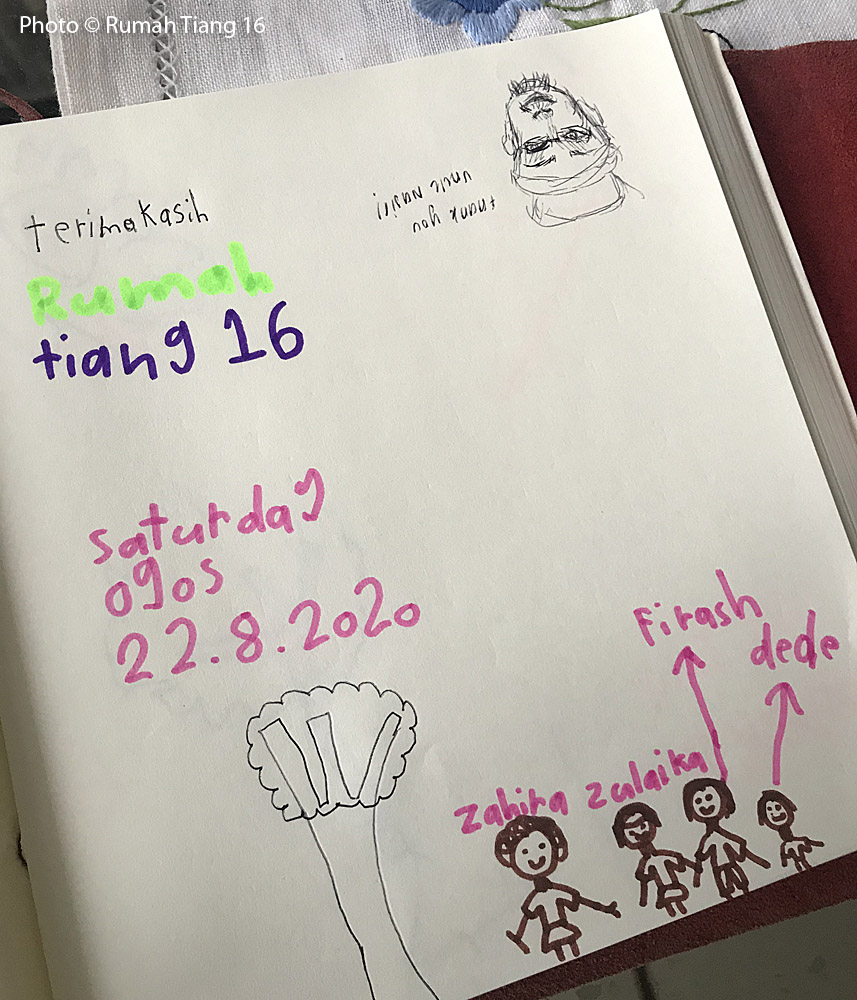 Photo © Rumah Tiang 16
terimakasih
Rumah
tiang 16
thank you
uncle Nasir!
saturday
ogos
22.8.2020
Firash
dede
zahira zulaika